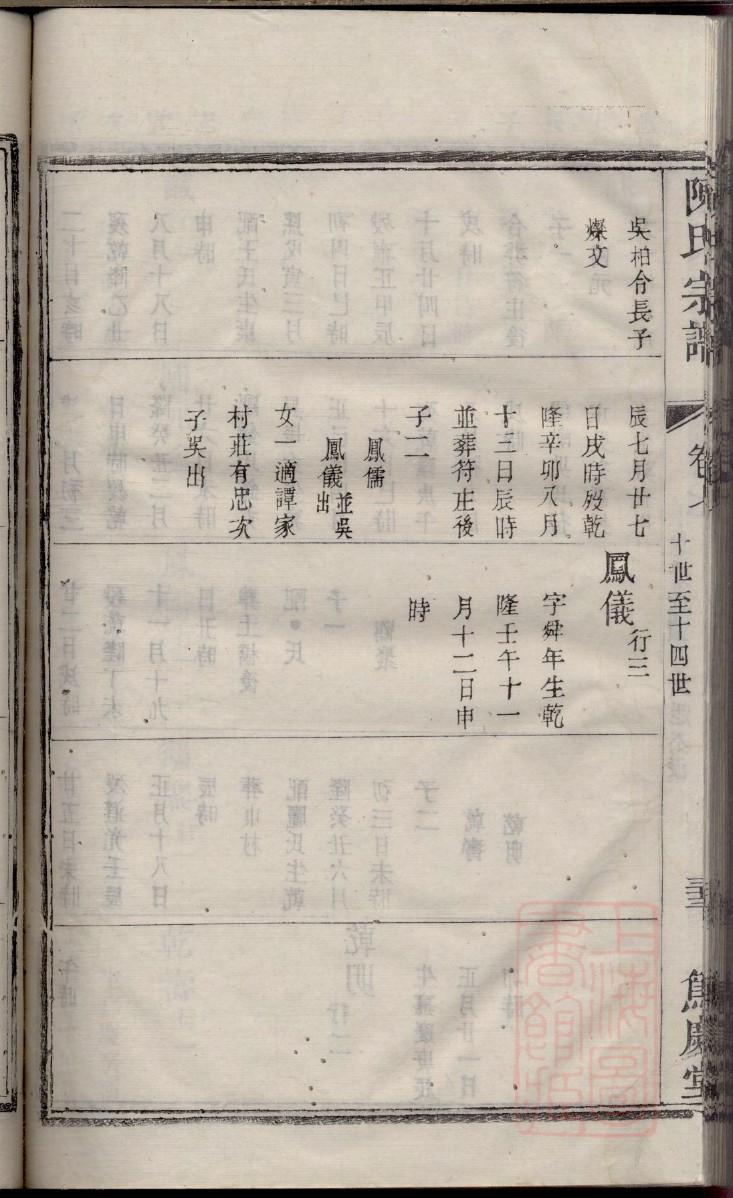 陳氏宗譜
卷七
十世至十四世
雋慶堂
吳柏合長子
燦文
辰七月廿七
日戌時歿乾
隆辛卯八月
十三日辰時
並葬符庄後
子二
鳳儒
鳳儀並吳出
女一適譚家
村莊有忠次
子吳出
鳳儀行三
字舜年生乾
隆壬午十一
月十二日申
時